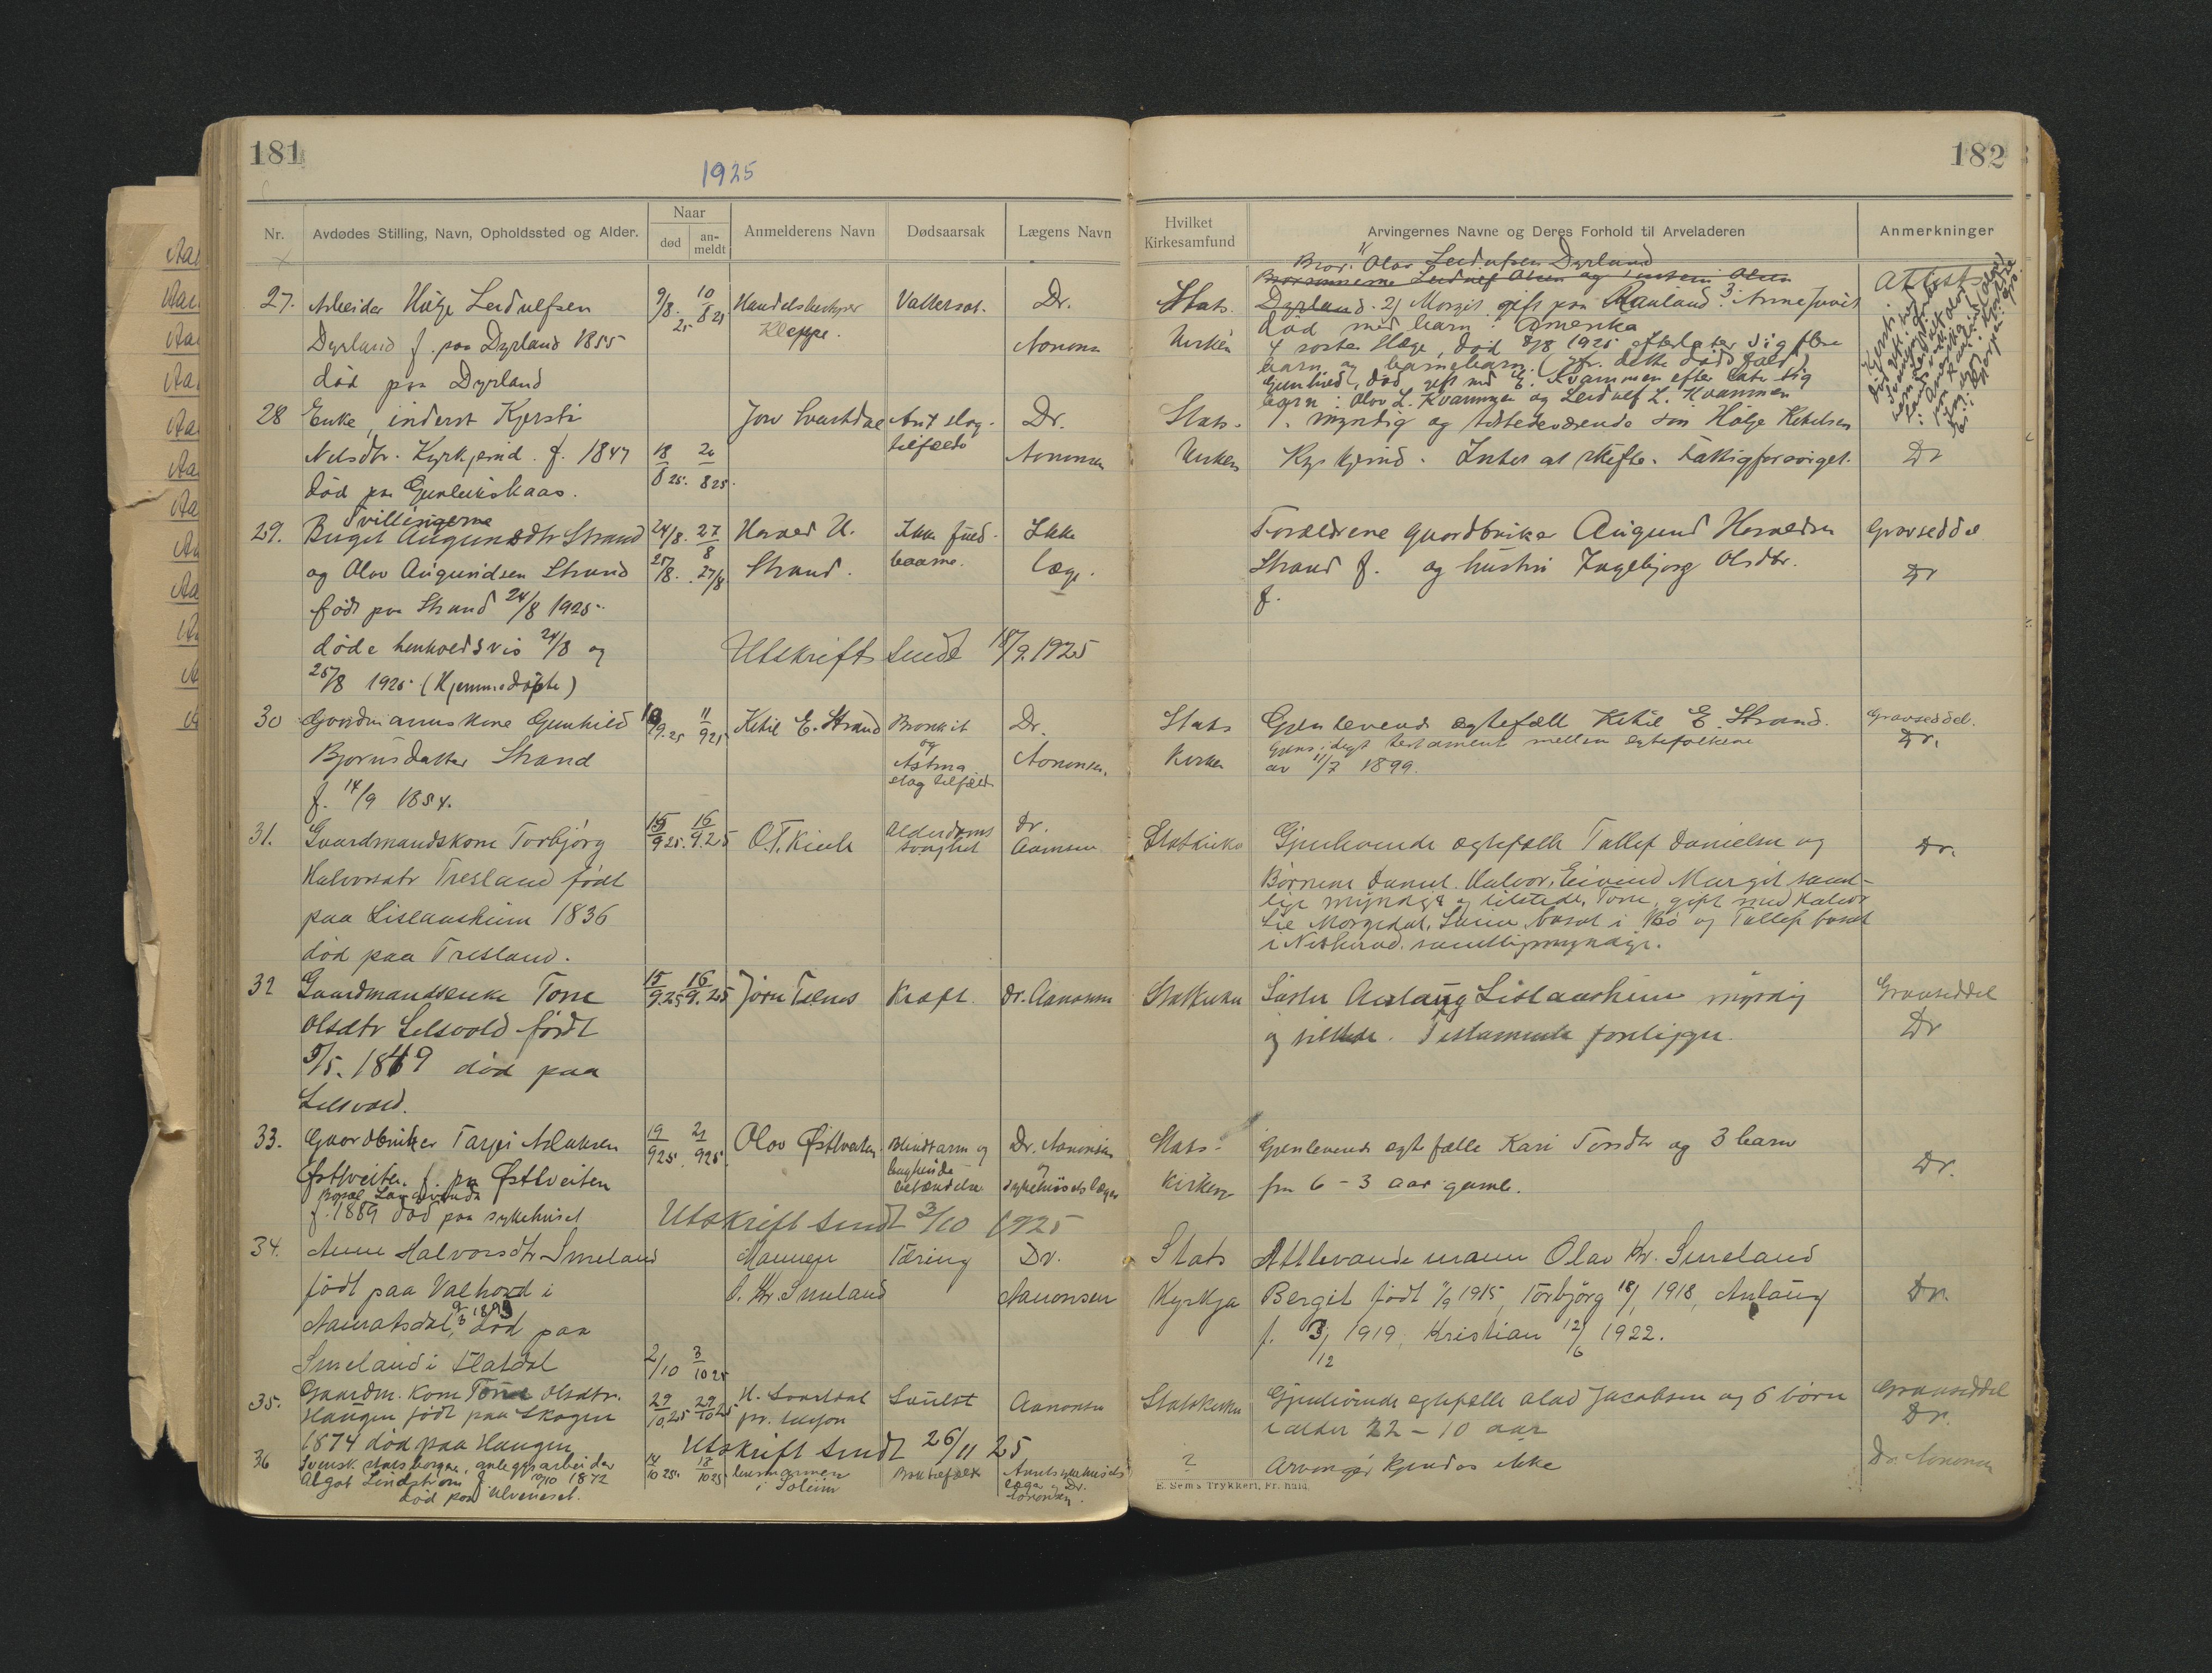 181
1925
182
Nr.
Avdødes Stilling, Navn, Opholdssted og Alder.
Naar
død
an-
meldt
Anmelderens Navn
Dødsaarsak
Lægens Navn
Hvilket
Kirkesamfund
Arvingernes Navne og Deres Forhold til Arveladeren
Anmerkninger
27. Arbeider Hølge Leidulfsen
Dyrland f. paa Dyrland 1855
død paa Dyrland
9/8. 25 10/8 25
Kleppe.
Dr.
Aonons
Stats.
Kirken
Bror: 1/ Olav Leidulfsen Dyrland
Brorsønnerne Leidulf Olsen og Olsen
Dyrland. 2/ Margit gift paa Rauland 3. Anne Juvet
død med barn i Amerika
4 søster Hæge, død 8/8 1925 efterlater sig flere
barn og barnebarn. (jfr. dette dødsfald)
Gunhild, død, gift med E. Kvammen efter later sig
barn: Olov L. Kvammen og Leidulf L. Kvammen
Attest
28 Enke, inderst Kjersti
Nilsdtr. Kyrkjerud. f. 1847
død paa Gunleikskaas.
18/8 25. 20/8 25.
Jow Svartdal
Ant slag-
tilfælde
Dr.
Aononsen
Stats-
Kirken
1. myndig og tilstedeværende søn Hølge Ketilsen
Kyrkjerud. Intet at skifte. Fattigforsørget.
Dr
29. Tvillingerne
Birgit Augundsdtr Strand
og Olav Augundsen Strand
født paa Strand 24/8 1925.
døde henholdsvis 24/8 og
25/8 1925 (Hjemmedøpte)
24/8. 27/8
25/8. 27/8
H.
Strand.
Ikke fuld-
baarne.
Ikke
læge.
Utskrift sendt 18/9. 1925
Forældrene gaardbruker Augund
Strand f. og hustru Ingebjørg Olsdtr.
f.
Gravseddel
Dr
30 Gaardmannskone Gunhild
Bjørnsdatter Strand
f. 14/9 1854.
10/9. 25 11/9 25
Ketil E. Strand
Bronkit
og
Astma
slag tilfælde
Dr.
Aononsen.
Stats
Kirken
Gjenlevende egtefælle Ketil E. Strand.
Gjensidigt testament mellem egtefolkene
av 11/7 1899.
Gravseddel.
Dr.
31. Gaardmandskone Torbjørg
Halvorsdtr Tresland født
paa Lislaasheim 1836
død paa Tresland.
15/9 25. 16/9. 25
O.T.
Alderdoms
svaghet
Dr.
Aamsen
Statskirke
Gjenlevende egtefælle Tallef Danielsen og
Børnene Daniel. Halvor, Eivind Margit samt-
lige myndige og tilstede, Tone, gift med Halvor
Lie Morgedal, bosat i Bø og Tallef bosat
i Nissherad. samtlig myndige.
Dr.
32 Gaardmandsenke Tone
Olsdtr Lilsvold født
5/5. 1849 død paa
Lilsvold.
15/9. 25 16/9. 25
Jørn Telnes
Kræft
Dr. Aanonsen
Statskirken
Søster Aaslaug Lislaasheim myndig
og tilstede. Testamente foreligger.
Gravseddel
Dr
33. Gaardbruker Tarjei Aslaksen
Østtveiten. f. paa Østtveiten
f. 1889 død paa sykehuset
19/9 25. 21/9 25.
Olov Østtveiten
Blindtarm og
bughinde-
betændelse
Dr. Aanonsen
og
sykehusets læger
Utskrift sendt 3/10 1925
Stats-
kirken
Gjenlevende egtefælle Kari Torsdtr og 3 barn
fra 6 – 3 aar gaml.
Dr.
34. Anne Halvorsdtr Smeland
født paa Valhovd i
Aamotsdal, 9/3 1893 død paa
Smeland i Flatdal
2/10 3/10 25
Mannen
O. Kr Smeland
Tæring
Dr.
Aanonsen
Stats
Kyrkja
Attlevande mann Olav Kr. Smeland
Bergit født 7/9 1915, Torbjørg 18/1 1918, Anlaug
f. 3/12 1919, Kristian 12/6 1922.
Dr.
35. Gaardm. Kone Tone Olsdtr.
Haugen født paa Skogen
1874 død paa Haugen
27/10. 25 29/10 25
H. Svartdal
pr. telefon
Sulst
Aanonsen
Utskrift sendt 26/11 25
Statskirken
Gjenlevende egtefælle Olav Jacobsen og 6 børn
i alder 22 – 10 aar
Gravseddel
Dr.
36 Svensk statsborger, anleggsarbeider
Algot Lindstrøm f. 1872
død paa Ulveneset.
14/10 25. 17/10 25
lensmannen
i Soleim
Amtssykehusets
læge og Dr.
Aononsen.
?
Arvinger kjendes ikke
Dr. Aononsen
E. Sems Trykkeri, Fr.hald.